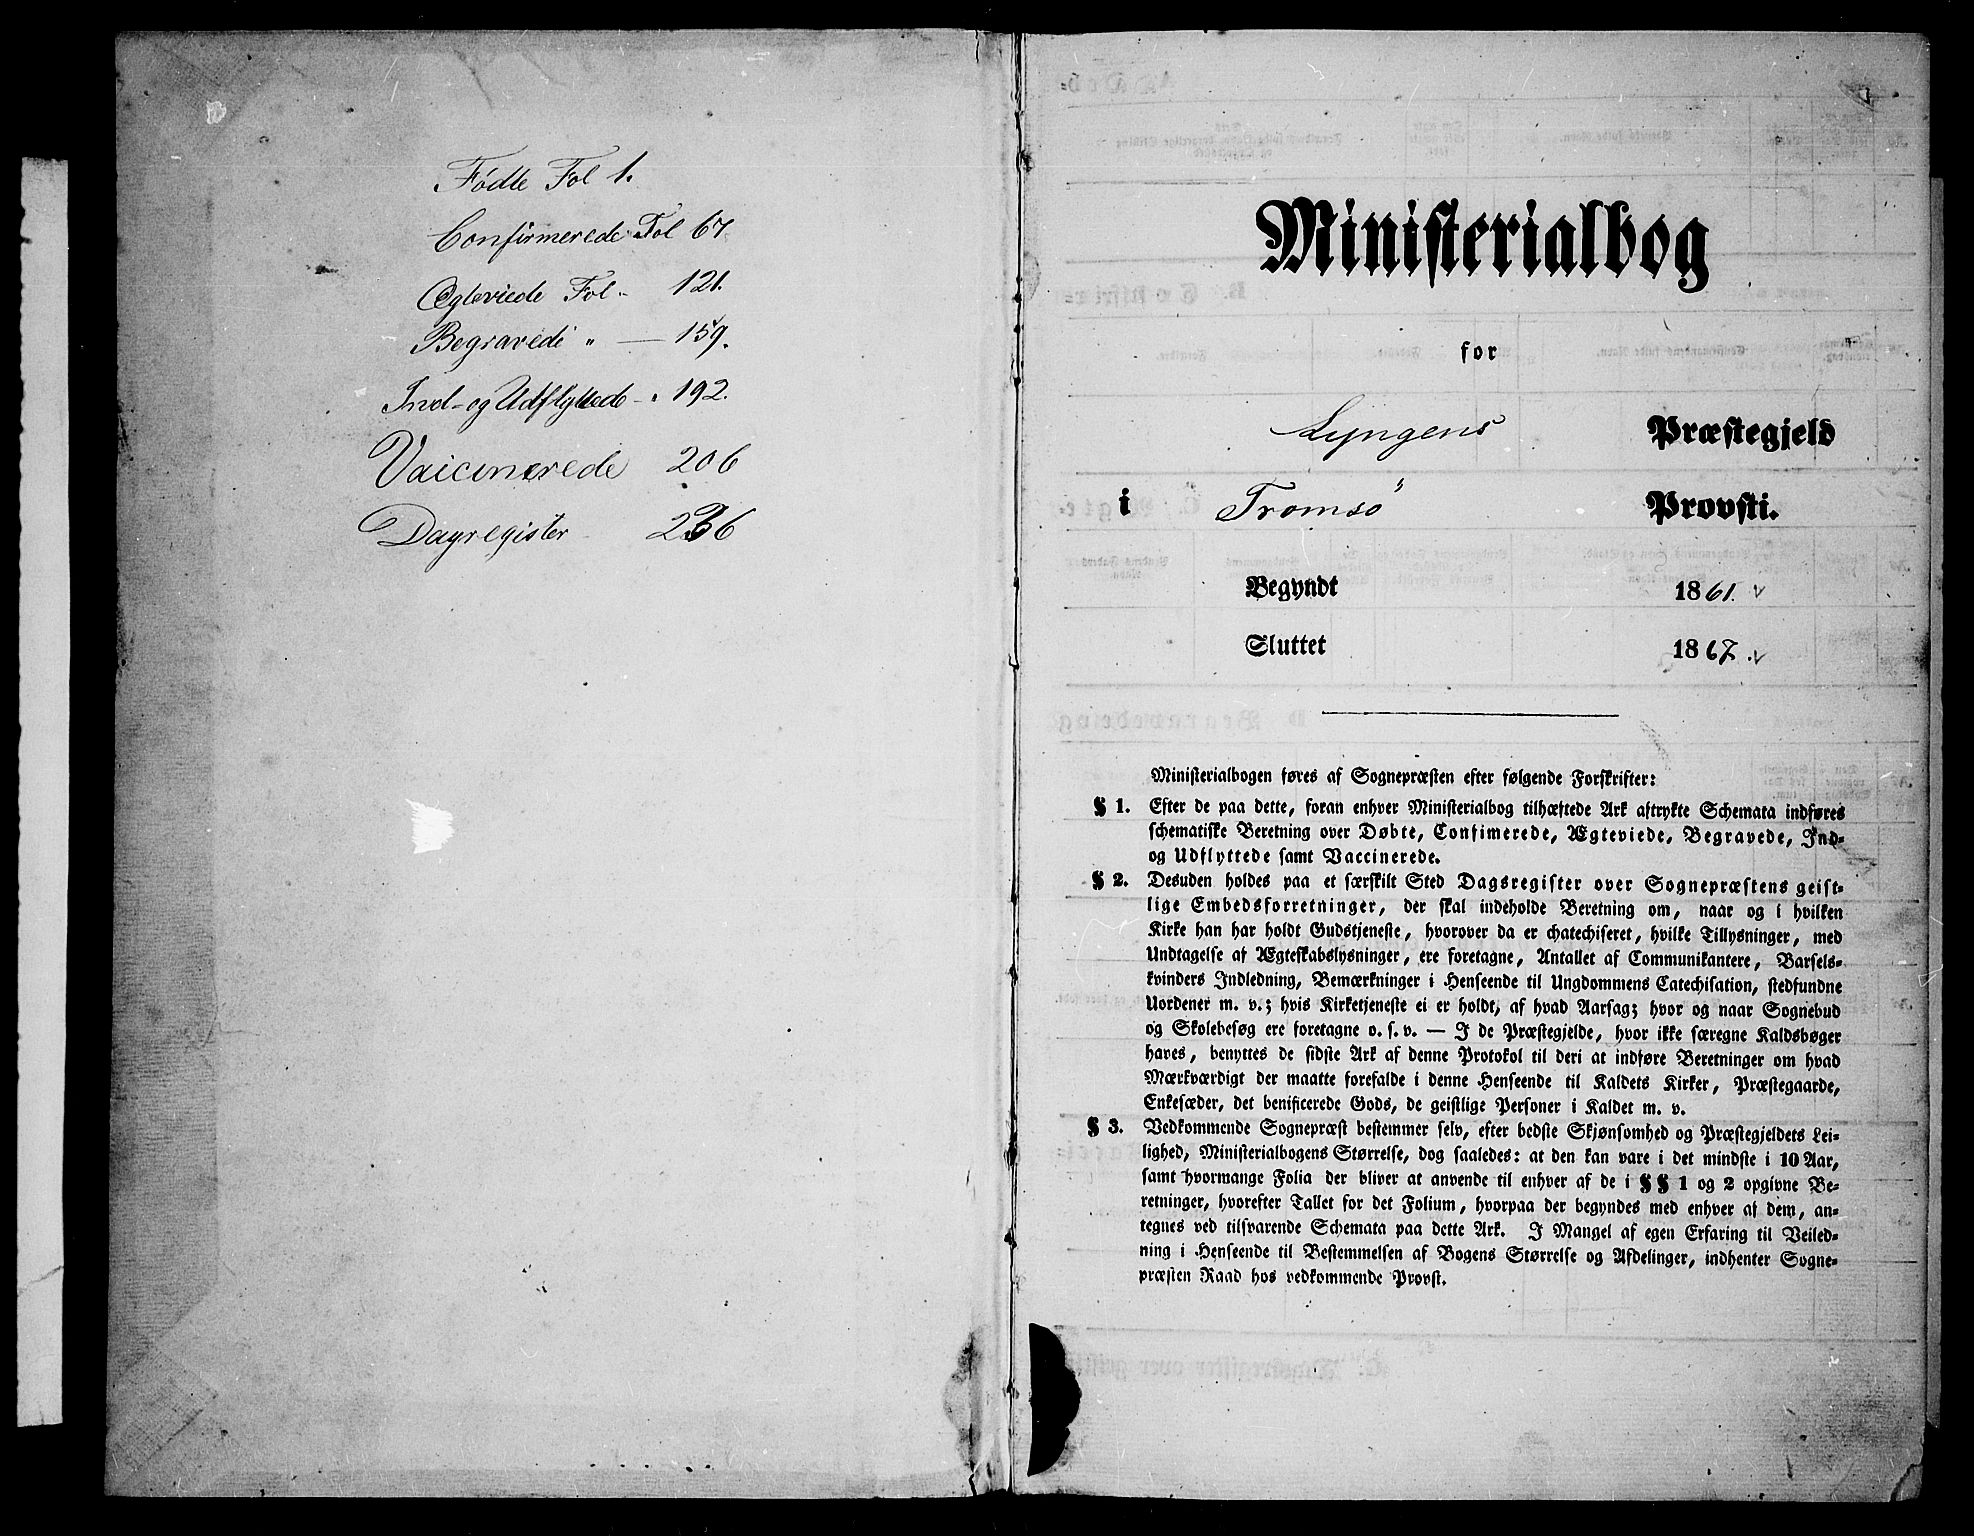 Fødte Fol 1.
Confirmerede Fol 67
Ægteviede Fol. 121.
Begravede " — 159.
Ind- og Udflyttede - " 192.
Vaicinerede 206
Dagregister 236
Ministerialbog
for
Lyngens Præstegjeld
i Tromsö Provsti.
Begyndt 1861.
Sluttet 1867.
Ministerialbogen føres af Sognepræsten efter følgende Forskrifter:
§ 1. Efter de paa dette, foran enhver Ministerialbog tilhæftede Ark aftrykte Schemata indføres
schematiske Beretning over Døbte, Confimerede, Ægteviede, Begravede, Ind-
og Udflyttede samt Vaccinerede.
§ 2. Desuden holdes paa et særskilt Sted Dagsregister over Sognepræstens geist-
lige Embedsforretninger, der skal indeholde Beretning om, naar og i hvilken
Kirke han har holdt Gudstjeneste, hvorover da er chatechiseret, hvilke Tillysninger, med
Undtagelse af Ægteskabslysninger, ere foretagne, Antallet af Communikantere, Barsels-
kvinders Indledning, Bemærkninger i Henseende til Ungdommens Catechisation, stedfundne
Uordener m. v.; hvis Kirketjeneste ei er holdt, af hvad Aarsag; hvor og naar Sognebud
og Skolebesøg ere foretagne o. s. v. — I de Præstegjelde, hvor ikke særegne Kaldsbøger
haves, benyttes de sidste Ark af denne Protokol til deri at indføre Beretninger om hvad
Mærkværdigt der maatte forefalde i denne Henseende til Kaldets Kirker, Præstegaarde,
Enkesæder, det benificerede Gods, de geistlige Personer i Kaldet m. v.
§ 3. Vedkommende Sognepræst bestemmer selv, efter bedste Skjønsomhed og Præstegjeldets Lei-
lighed, Ministerialbogens Størrelse, dog saaledes: at den kan vare i det mindste i 10 Aar,
samt hvormange Folia der bliver at anvende til enhver af de i §§ 1 og 2 opgivne Be-
retninger, hvorefter Tallet for det Folium, hvorpaa der begyndes med enhver af dem, an-
tegnes ved tilsvarende Schemata paa dette Ark. I Mangel af egen Erfaring til Veiled-
ning i Henseende til Bestemmelsen af Bogens Størrelse og Afdelinger, indhenter Sogne-
præsten Raad hos vedkommende Provst.